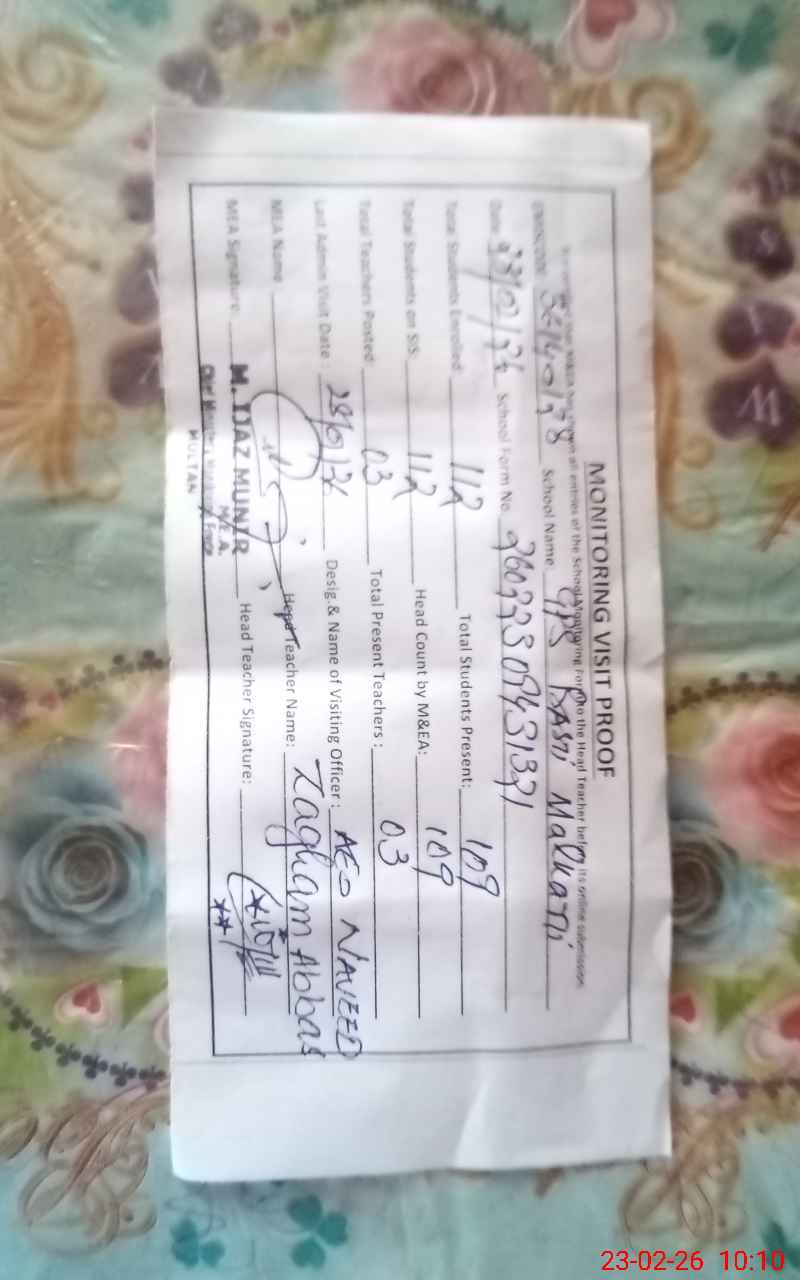 MONITORING VISIT PROOF
that M&EA has shown all entries of the School Monitoring Form to the Head Teacher before its online submission
EMIS CODE School Name GPS BASTI MALKANI
Date 23/02/26 School Form No.
Total Students Enrolled 112 Total Students Present: 109
Total Students on SIS: 112 Head Count by M&EA: 109
Total Teachers Posted: 03 Total Present Teachers: 03
Last Admin Visit Date: Desig.& Name of Visiting Officer: AEO NAVEED
MEA Name Head Teacher Name: Zagham Abbas
MEA Signature: M. IJAZ MUNIR Head Teacher Signature:
M.E.A.
Chief Minister's Monitoring Force
MULTAN
23-02-26 10:10